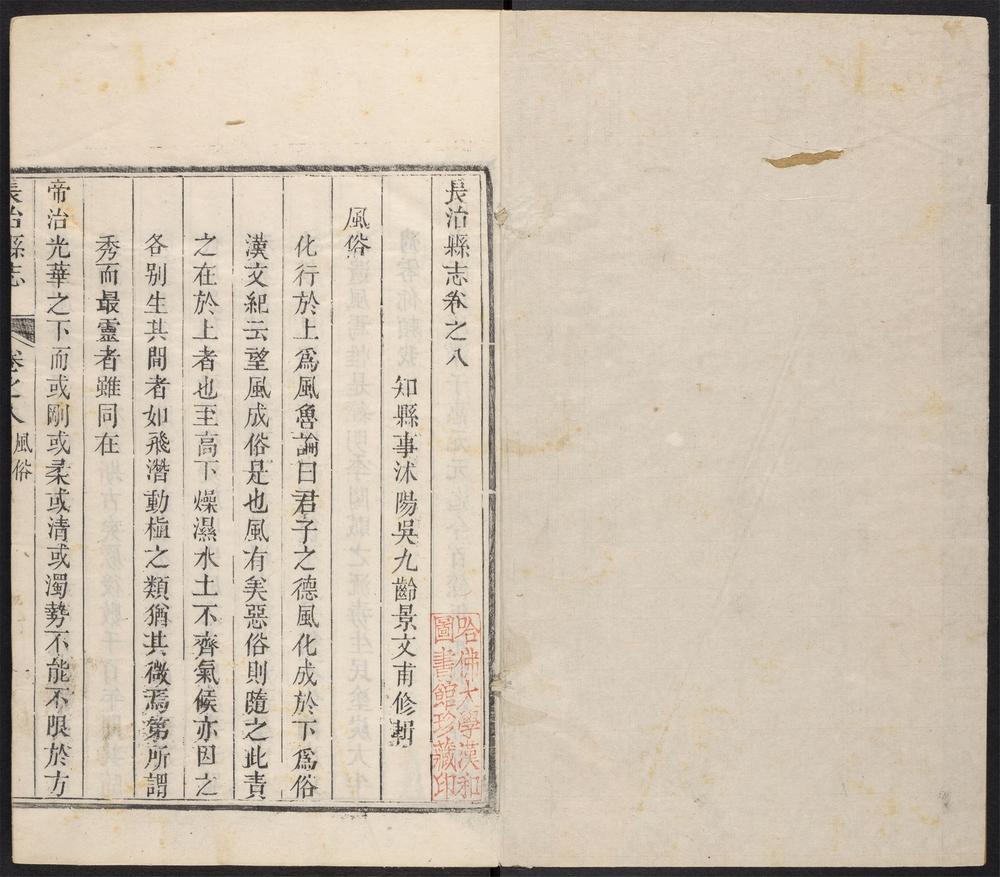 長治縣志卷之八
知縣事沭陽吳九齡景文甫修輯
風俗
化行於上爲風魯論曰君子之德風化成於下爲俗
漢文紀云望風成俗是也風有美惡俗則隨之此責
之在於上者也至高下燥濕水土不齊氣候亦因之
各別生其間者如飛潛動植之類猶其微焉第所謂
秀而最靈者雖同在
帝治光華之下而或剛或柔或清或濁勢不能不限於方
長治縣志
卷之八
風俗
一
哈佛大學漢和
圖書館珍藏印